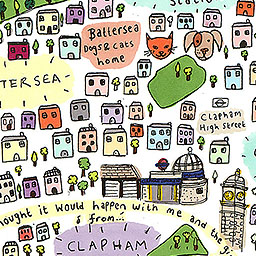 Statio
Battersea
Dogs & Cats
home
TERSEA
CLAPHAM
High Street
hought it would happen with me and the g
from...
CLAPHAM